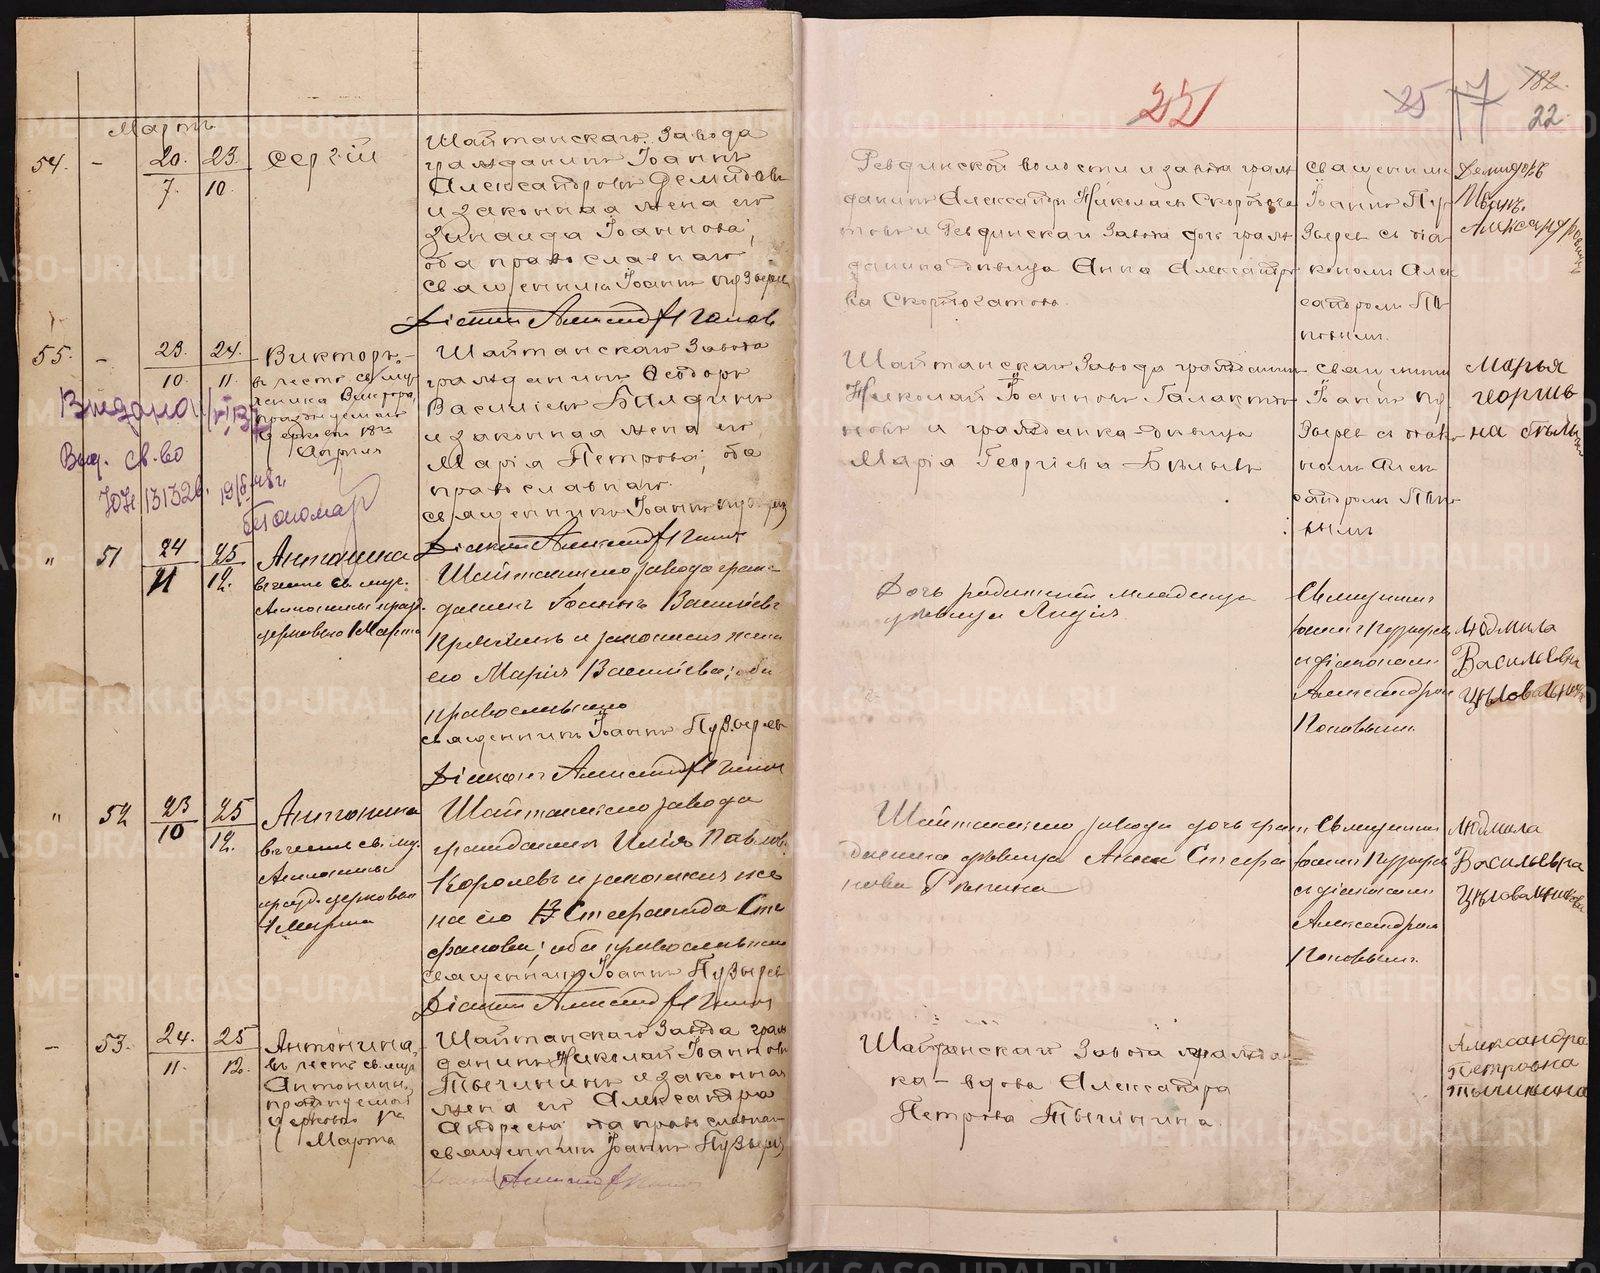 Мартъ
54. – 20. 23. Сергій
7. 10.
Шайтанскаго Завода
гражданинъ Іоаннъ
Александровъ Демидовъ
и законная жена его
Зинаида Іоаннова,
оба православнаго
священникъ Іоаннъ Пузыревъ
Діаконъ
55. – 23. 24. Викторъ –
10. 11. въ честь св. муч
еника Виктора,
празднуемаго
Церковію 18го
Апрѣля
Выдана
Выд. св-во
ЮН 131326.
Пономар
Шайтанскаго Завода
гражданинъ Ѳеодоръ
Василіевъ Балдинъ
и законная жена его
Марія Петрова; оба
православнаго.
священникъ Іоаннъ Пузырев
Діаконъ
" 51 24 25 Антонина
11 12. въ честь св. муч.
Антонины празд.
церковью 1 Марта
Шайтанскаго завода граж-
данинъ Іоаннъ Васильевъ
и законная жена
его Марія Васильева; оба
православнаго
священникъ Іоаннъ Пузыревъ
Діаконъ
" 52 23 25 Антонина
10 12. въ честь св. му.
Антонины
празд. церковью
1 Марта
Шайтанскаго завода
гражданинъ Илія Павлов.
Королевъ и законная же
на его Стефанида Сте
фанова; оба православнаго
священникъ Іоаннъ Пузыревъ
Діаконъ
– 53. 24. 25 Антонина,
11. 12. въ честь св. муч
Антонины,
празднуемой
Церковью 1го
Марта
Шайтанскаго Завода граж
данинъ Николай Іоанновъ
Тычининъ и законная
жена его Александра
Андреева оба православнаго
священникъ Іоаннъ Пузырев
25 25 17 182.
22
Ревдинской волости и завода граж
данинъ Александръ Николаевъ Скоробога
товъ и Ревдинскаго Завода дочь граж
данина дѣвица Анна Александро
ва Скоробогатова.
священник
Іоаннъ Пу
зыревъ съ діа
кономъ Алек
сандромъ По
повымъ.
Демидовъ
Иванъ
Александрович
Шайтанскаго Завода гражданин
Николай Іоанновъ Галактіо
новъ и гражданка дѣвица
Марія Георгіева Бѣлыхъ
священник
Іоаннъ Пу
зыревъ съ діако
номъ Алек
сандромъ Поп
овымъ
Марья
георгиев
на бѣлых
Дочь родителей младенца
дѣвица Лидія.
Священникъ
Іоаннъ Пузырев
съ діакономъ
Александром
Поповымъ.
Людмила
Васильевна
Цѣловальник
Шайтанскаго завода дочь граж
данина дѣвица Анна Стефа
нова Рѣпина
Священник
Іоаннъ Пузырев
съ діакономъ
Александром
Поповымъ.
Людмила
Васильевна
Цѣловальникова
Шайтанскаго Завода граждан
ка – вдова Александра
Петрова Тычинина.
Александра
Петровна
Тычинина
METRIKI.GASO-URAL.RU